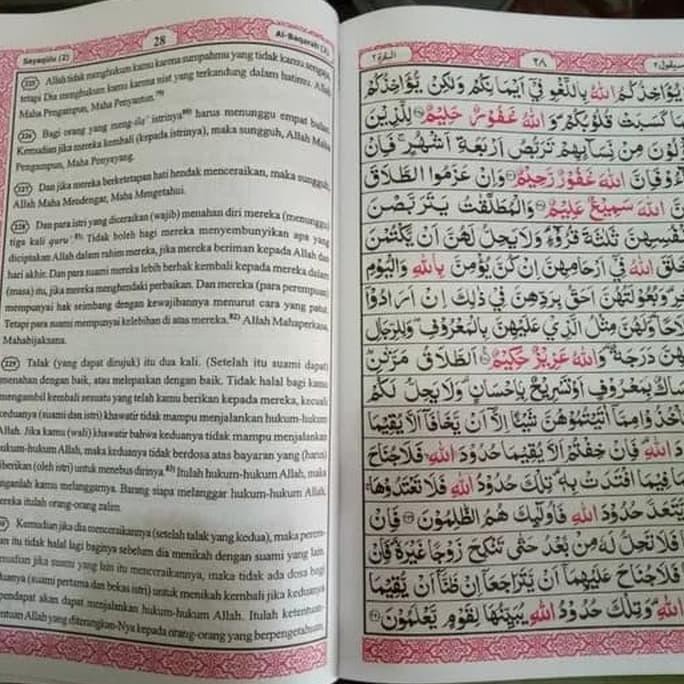 Sayaqūlu (2) 28 Al-Baqarah (2)
(225) Allah tidak menghukum kamu karena sumpahmu yang tidak kamu sengaja,
tetapi Dia menghukum kamu karena niat yang terkandung dalam hatimu. Allah
Maha Pengampun, Maha Penyantun.79)
(226) Bagi orang yang meng-ila' istrinya80) harus menunggu empat bulan.
Kemudian jika mereka kembali (kepada istrinya), maka sungguh, Allah Maha
Pengampun, Maha Penyayang.
(227) Dan jika mereka berketetapan hati hendak menceraikan, maka sungguh,
Allah Maha Mendengar, Maha Mengetahui.
(228) Dan para istri yang diceraikan (wajib) menahan diri mereka (menunggu)
tiga kali quru'.81) Tidak boleh bagi mereka menyembunyikan apa yang
diciptakan Allah dalam rahim mereka, jika mereka beriman kepada Allah dan
hari akhir. Dan para suami mereka lebih berhak kembali kepada mereka dalam
(masa) itu, jika mereka menghendaki perbaikan. Dan mereka (para perempuan)
mempunyai hak seimbang dengan kewajibannya menurut cara yang patut.
Tetapi para suami mempunyai kelebihan di atas mereka.82) Allah Mahaperkasa,
Mahabijaksana.
(229) Talak (yang dapat dirujuk) itu dua kali. (Setelah itu suami dapat)
menahan dengan baik, atau melepaskan dengan baik. Tidak halal bagi kamu
mengambil kembali sesuatu yang telah kamu berikan kepada mereka, kecuali
keduanya (suami dan istri) khawatir tidak mampu menjalankan hukum-hukum
Allah. Jika kamu (wali) khawatir bahwa keduanya tidak mampu menjalankan
hukum-hukum Allah, maka keduanya tidak berdosa atas bayaran yang (harus)
diberikan (oleh istri) untuk menebus dirinya.83) Itulah hukum-hukum Allah, maka
janganlah kamu melanggarnya. Barang siapa melanggar hukum-hukum Allah,
mereka itulah orang-orang zalim.
Kemudian jika dia menceraikannya (setelah talak yang kedua), maka perem-
an itu tidak halal lagi baginya sebelum dia menikah dengan suami yang lain.
mudian jika suami yang lain itu menceraikannya, maka tidak ada dosa bagi
duanya (suami pertama dan bekas istri) untuk menikah kembali jika keduanya
pendapat akan dapat menjalankan hukum-hukum Allah. Itulah ketentuan-
entuan Allah yang diterangkan-Nya kepada orang-orang yang berpengetahuan.
سيقول ٢ ٢٨ البقرة ٢
يُؤَاخِذُكُمُ اللهُ بِاللَّغْوِ فِيْٓ اَيْمَانِكُمْ وَلٰكِنْ يُّؤَاخِذُكُمْ
مَا كَسَبَتْ قُلُوْبُكُمْ وَاللهُ غَفُوْرٌ حَلِيْمٌ ۝ لِلَّذِيْنَ
لُوْنَ مِنْ نِّسَآئِهِمْ تَرَبُّصُ اَرْبَعَةِ اَشْهُرٍ فَاِنْ
ءُوْ فَاِنَّ اللهَ غَفُوْرٌ رَّحِيْمٌ ۝ وَاِنْ عَزَمُوا الطَّلَاقَ
نَّ اللهَ سَمِيْعٌ عَلِيْمٌ ۝ وَالْمُطَلَّقٰتُ يَتَرَبَّصْنَ
نْفُسِهِنَّ ثَلٰثَةَ قُرُوْٓءٍ وَلَا يَحِلُّ لَهُنَّ اَنْ يَّكْتُمْنَ
خَلَقَ اللهُ فِيْٓ اَرْحَامِهِنَّ اِنْ كُنَّ يُؤْمِنَّ بِاللهِ وَالْيَوْمِ
خِرِ وَبُعُوْلَتُهُنَّ اَحَقُّ بِرَدِّهِنَّ فِيْ ذٰلِكَ اِنْ اَرَادُوْٓا
لَاحًا وَلَهُنَّ مِثْلُ الَّذِيْ عَلَيْهِنَّ بِالْمَعْرُوْفِ وَلِلرِّجَالِ
هِنَّ دَرَجَةٌ وَاللهُ عَزِيْزٌ حَكِيْمٌ ۝ اَلطَّلَاقُ مَرَّتٰنِ
سَاكٌ بِمَعْرُوْفٍ اَوْ تَسْرِيْحٌ بِاِحْسَانٍ وَلَا يَحِلُّ لَكُمْ
تَأْخُذُوْا مِمَّآ اٰتَيْتُمُوْهُنَّ شَيْـًٔا اِلَّآ اَنْ يَّخَافَآ اَلَّا يُقِيْمَا
دَ اللهِ فَاِنْ خِفْتُمْ اَلَّا يُقِيْمَا حُدُوْدَ اللهِ فَلَا جُنَاحَ
مَا فِيْمَا افْتَدَتْ بِهٖ تِلْكَ حُدُوْدُ اللهِ فَلَا تَعْتَدُوْهَا
يَّتَعَدَّ حُدُوْدَ اللهِ فَاُولٰٓئِكَ هُمُ الظّٰلِمُوْنَ ۝ فَاِنْ
فَلَا تَحِلُّ لَهٗ مِنْۢ بَعْدُ حَتّٰى تَنْكِحَ زَوْجًا غَيْرَهٗ فَاِنْ
فَلَا جُنَاحَ عَلَيْهِمَآ اَنْ يَّتَرَاجَعَآ اِنْ ظَنَّآ اَنْ يُّقِيْمَا
اللهِ وَتِلْكَ حُدُوْدُ اللهِ يُبَيِّنُهَا لِقَوْمٍ يَّعْلَمُوْنَ ۝